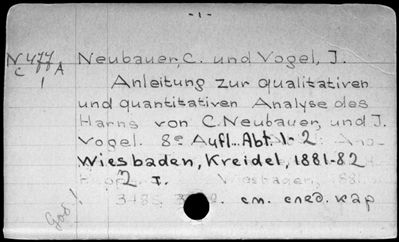 - 1 -
N 477 A
C 1
Neubauer, C. und Vogel, J.
Anleitung zur qualitativen
und quantitativen Analyse des
Harns von C. Neubauer, und J.
Vogel. 8e Aufl. Abt. 1-2.
Wiesbaden, Kreidel, 1881-82
2 т.
см. след. кар